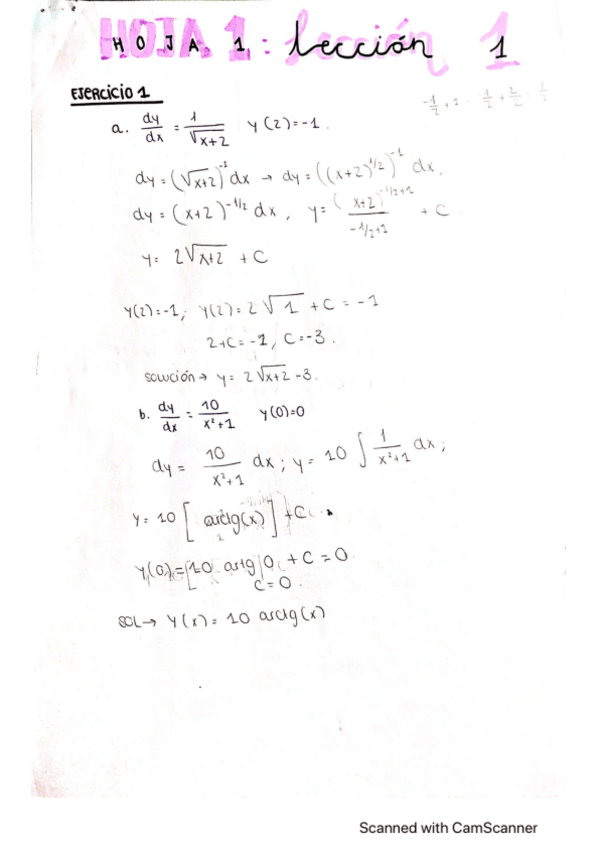 HOJA 1: Lección 1
EJERCICIO 1
-1/2 + 1 = 1/2 + 2/2 = 1/2
a. dy/dx = 1/√(x+2) y(2)=-1.
dy = (√(x+2))^-1 dx → dy = ((x+2)^1/2)^-1 dx,
dy = (x+2)^-1/2 dx, y = (x+2)^-1/2+1 / -1/2+1 + C
y = 2√(x+2) + C
y(2)=-1; y(2)= 2√1 + C = -1
2+C = -1, C=-3.
solución → y = 2√(x+2) -3.
b. dy/dx = 10/(x²+1) y(0)=0
dy = 10/(x²+1) dx ; y = 10 ∫ 1/(x²+1) dx ;
y = 10 [arctg(x)] + C
y(0) = [10 artg 0 + C = 0
C = 0.
SOL → y(x) = 10 arctg(x)
Scanned with CamScanner